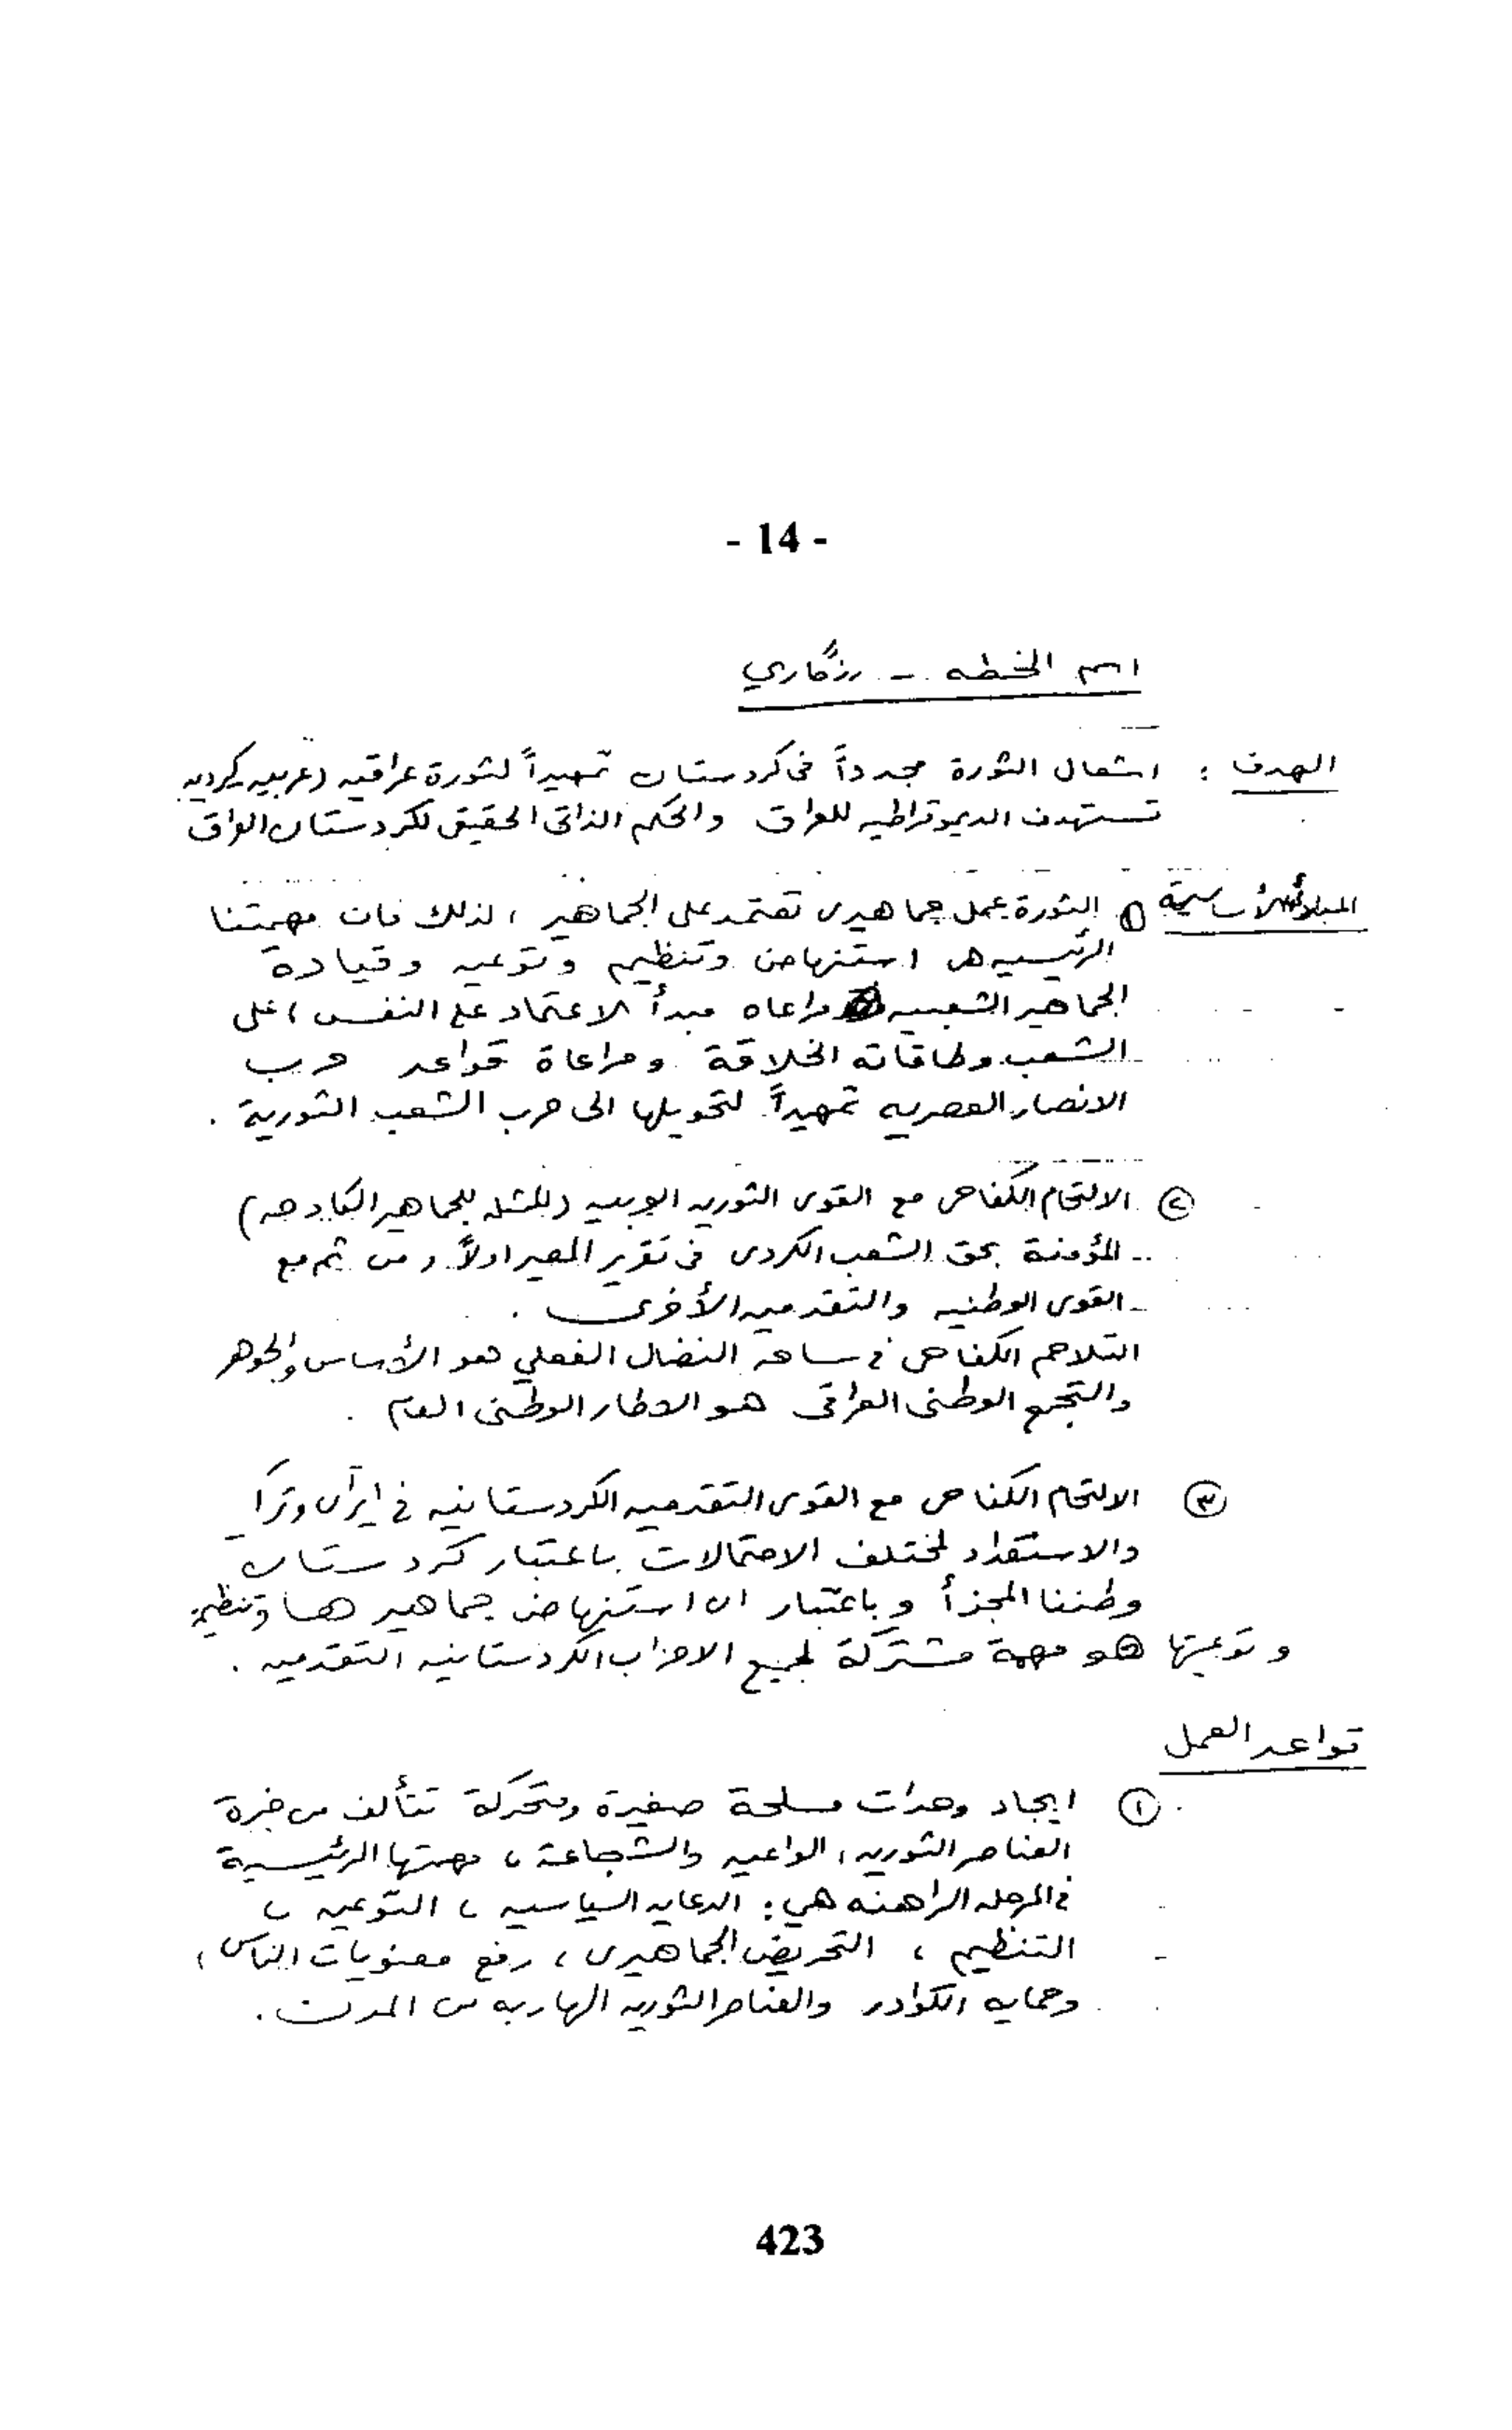 - 14 -
اسم الخطه - رزگاري
الهدف : اشعال الثورة مجدداً فى كردستان تمهيداً لثورة عراقيه (عربيه كرديه
تستهدف الديموقراطيه للعراق والحكم الذاتى الحقيقى لكردستان العراق
المبادئ الأساسية ① الثورة عمل جماهيرى تعتمد على الجماهير ، لذلك فان مهمتنا
الرئيسيه هى استنهاض وتنظيم وتوعيه وقيادة
الجماهير الشعبيه مراعاه مبدأ الاعتماد على النفس ، على
الشعب وطاقاته الخلاقة ومراعاة قواعد حرب
الانصار العصريه تمهيداً لتحويلها الى حرب الشعب الثورية .
② الالتحام الكفاحى مع القوى الثوريه العربيه (الممثله للجماهير الكادحه)
المؤمنة بحق الشعب الكردى فى تقرير المصير اولاً ومن ثم مع
القوى الوطنيه والتقدميه الأخرى .
التلاحم الكفاحى فى ساحة النضال الفعلي هو الأساس والجوهر
والتجمع الوطنى العراقى هو الاطار الوطنى العام .
③ الالتحام الكفاحى مع القوى التقدميه الكردستانيه فى ايران وتركيا
والاستعداد لمختلف الاحتمالات باعتبار كردستان
وطننا المجزأ وباعتبار ان استنهاض جماهيرها وتنظيمها
وتوعيتها هو مهمة مشتركة لجميع الاحزاب الكردستانيه التقدميه .
قواعد العمل
① ايجاد وحدات مسلحة صغيرة ومتحركة تتألف من خيرة
العناصر الثوريه ، الواعيه والشجاعة ، مهمتها الرئيسية
فى المرحله الراهنه هي : الدعايه السياسيه ، التوعيه ،
التنظيم ، التحريض الجماهيرى ، رفع معنويات الناس ،
وحمايه الكوادر والعناصر الثوريه الهاربه من المدن .
423